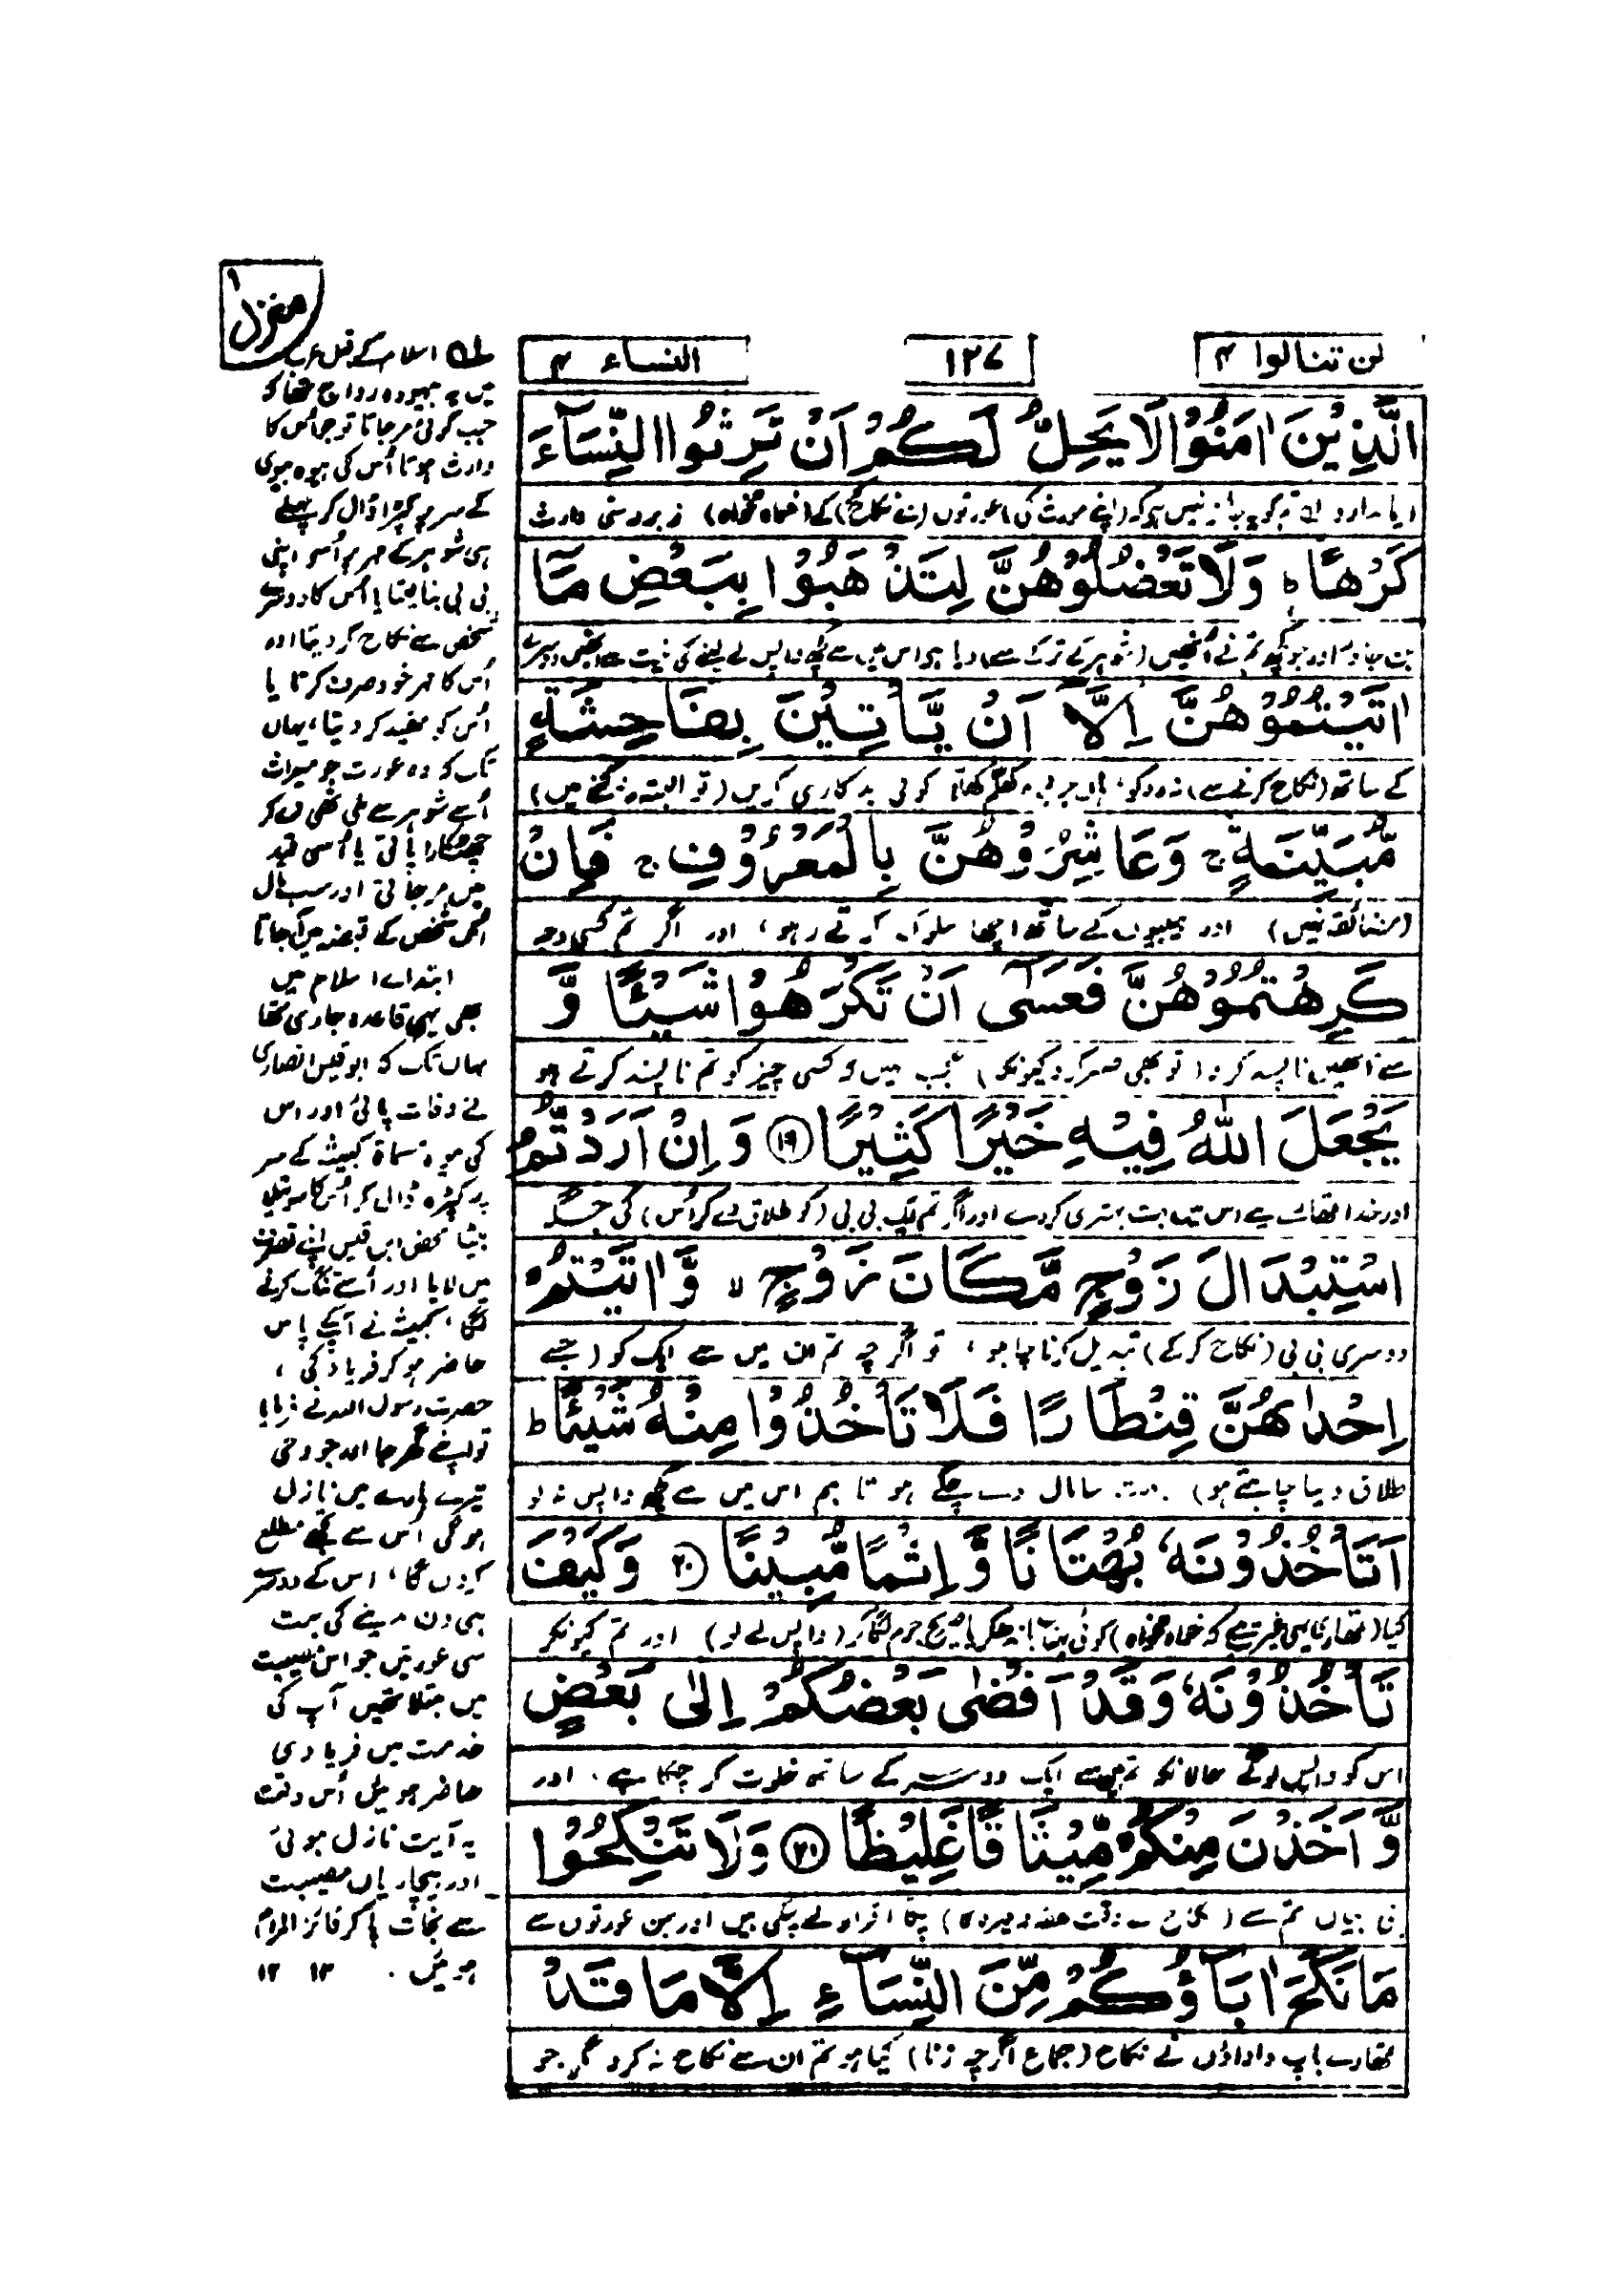 لن تنالوا ۴
۱۲۷
النساء ۴
الَّذِيْنَ اٰمَنُوْا لَا يَحِلُّ لَكُمْ اَنْ تَرِثُوا النِّسَآءَ
زبردستی وارث
كَرْهًا ؕ وَلَا تَعْضُلُوْهُنَّ لِتَذْهَبُوْا بِبَعْضِ مَآ
بن جاؤ اور جو کچھ تم نے اُنھیں (شوہر کے ترکہ سے) دیا ہو اس میں سے کچھ واپس لے لینے کی نیت سے انھیں دوسرے
اٰتَيْتُمُوْهُنَّ اِلَّآ اَنْ يَّاْتِيْنَ بِفَاحِشَةٍ
کے ساتھ (نکاح کرنے سے) نہ روکو، ہاں جب وہ کھلم کھلا کوئی بدکاری کریں (تو البتہ روکنے میں)
مُّبَيِّنَةٍ ۚ وَعَاشِرُوْهُنَّ بِالْمَعْرُوْفِ ۚ فَاِنْ
(مضائقہ نہیں) اور بیبیوں کے ساتھ اچھا سلوک کرتے رہو، اور اگر تم کسی وجہ
كَرِهْتُمُوْهُنَّ فَعَسٰٓى اَنْ تَكْرَهُوْا شَيْئًا وَّ
سے انھیں ناپسند کرو (تو بھی صبر کرو کیونکہ) عجب نہیں کہ کسی چیز کو تم ناپسند کرتے ہو
يَجْعَلَ اللّٰهُ فِيْهِ خَيْرًا كَثِيْرًا ۝۱۹ وَاِنْ اَرَدْتُّمُ
اور خدا تمھارے لیے اس میں بہت بہتری کر دے اور اگر تم ایک بی بی (کو طلاق دے کر اُس) کی جگہ
اسْتِبْدَالَ زَوْجٍ مَّكَانَ زَوْجٍ ۙ وَّاٰتَيْتُمْ
دوسری بی بی (نکاح کرکے) تبدیل کرنا چاہو، تو اگرچہ تم ان میں سے ایک کو (جسے
اِحْدٰىهُنَّ قِنْطَارًا فَلَا تَاْخُذُوْا مِنْهُ شَيْئًا ؕ
طلاق دینا چاہتے ہو) بہت سا مال دے چکے ہو تاہم اس میں سے کچھ واپس نہ لو
اَتَاْخُذُوْنَهٗ بُهْتَانًا وَّاِثْمًا مُّبِيْنًا ۝۲۰ وَكَيْفَ
کیا (تمھاری یہی غیرت ہے کہ خواہ مخواہ) کوئی بہتان باندھ کر یا صریح جرم لگا کر (واپس لے لو) اور تم کیونکر
تَاْخُذُوْنَهٗ وَقَدْ اَفْضٰى بَعْضُكُمْ اِلٰى بَعْضٍ
اس کو واپس لوگے حالانکہ تم میں سے ایک دوسرے کے ساتھ خلوت کر چکا ہے، اور
وَّاَخَذْنَ مِنْكُمْ مِّيْثَاقًا غَلِيْظًا ۝۲۱ وَلَا تَنْكِحُوْا
بی بیاں تم سے (نکاح کے وقت نفقہ وغیرہ کا) پکا اقرار لے چکی ہیں اور جن عورتوں سے
مَا نَكَحَ اٰبَآؤُكُمْ مِّنَ النِّسَآءِ اِلَّا مَا قَدْ
تمھارے باپ داداؤں نے نکاح (جماع اگرچہ زنا) کیا ہو تم ان سے نکاح نہ کرو مگر جو
منزل ۱
ف۱ اسلام کے قبل عرب
میں یہ بیہودہ رواج تھا کہ
جب کوئی مر جاتا تو جو اُس کا
وارث ہوتا اُس کی بیوہ بیوی
کے سر پر کپڑا ڈال کر پہلے
ہی شوہر کے مہر پر اُسے اپنی
بی بی بنا لیتا یا اُس کا دوسرے
شخص سے نکاح کر دیتا اور
اُس کا مہر خود صرف کرتا یا
اُس کو مقید کر دیتا، یہاں
تک کہ وہ عورت جو میراث
اُسے شوہر سے ملی تھی دے کر
چھٹکارا پاتی یا اُسی قید
میں مر جاتی اور سب مال
اُس شخص کے قبضہ میں آ جاتا
ابتداے اسلام میں
بھی یہی قاعدہ جاری تھا
یہاں تک کہ ابو قیس انصاری
نے وفات پائی اور اس
کی بیوہ مسماۃ کبیشہ کے سر
پر کپڑہ ڈال کر اُس کا سوتیلا
بیٹا محصن ابن قیس اپنے تصرف
میں لایا اور اُسے تنگ کرنے
لگا، کبیشہ نے آپ کے پاس
حاضر ہو کر فریاد کی،
حضرت رسول اللہ نے فرمایا
تو اپنے گھر جا اور جو وحی
تیرے بارے میں نازل
ہوگی اُس سے تجھے مطلع
کروں گا، اس کے دوسرے
ہی دن مدینے کی بہت
سی عورتیں جو اس مصیبت
میں مبتلا تھیں آپ کی
خدمت میں فریادی
حاضر ہوئیں اُس وقت
یہ آیت نازل ہوئی
اور بیچاریاں مصیبت
سے نجات پا کر فائز المرام
ہوئیں . ۱۲ ۱۲